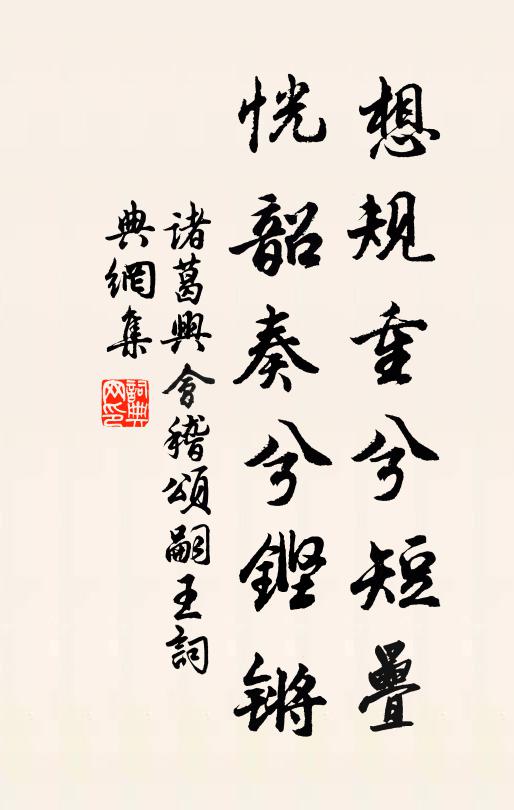 想規重兮短疊
恍韶奏兮鏗鏘
諸葛興會稽頌嗣王詞
典網集
詞典網印